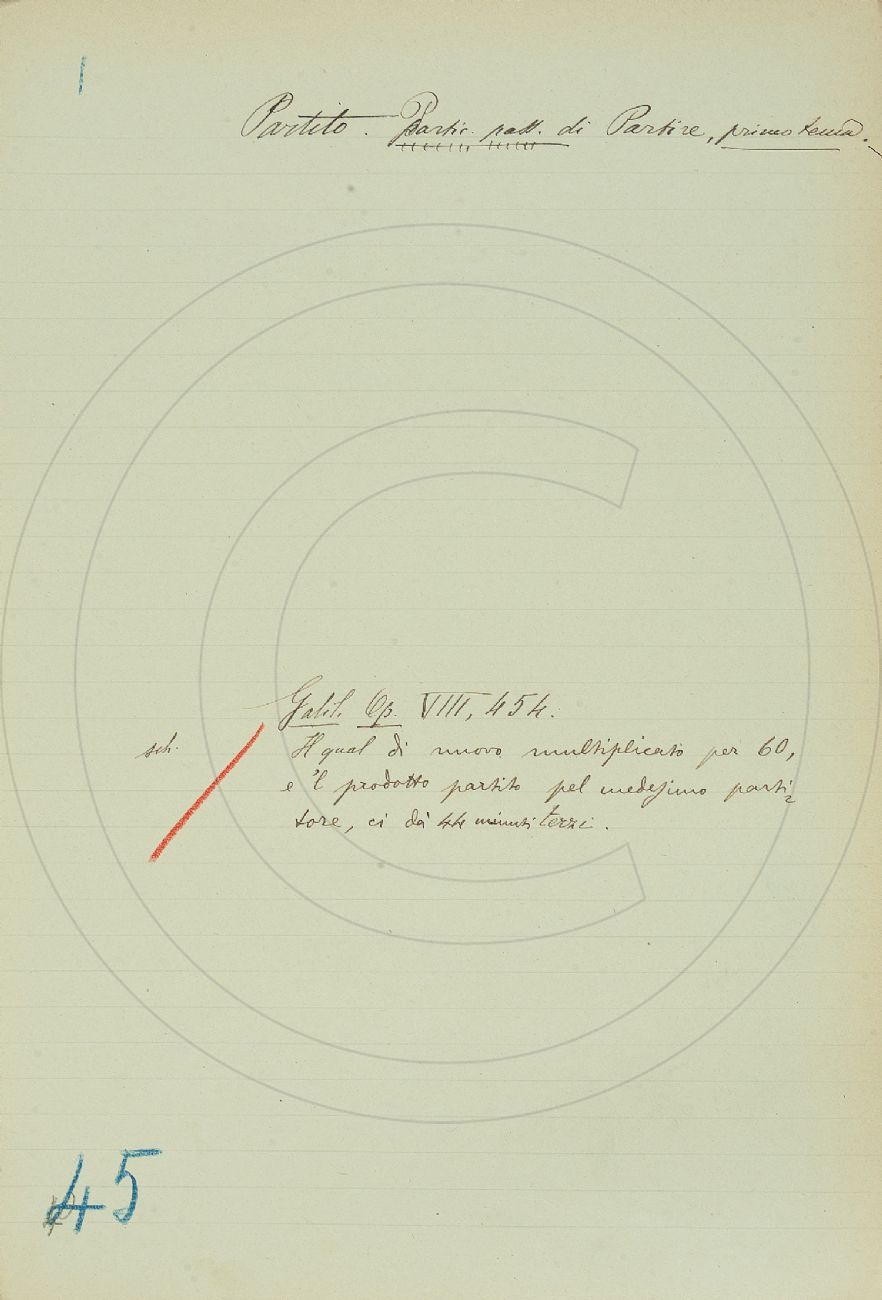 1
Partito. Partic. pass. di Partire, primo tema.
Galil. Op. VIII, 454.
sch. Il qual di nuovo multiplicato per 60,
e 'l prodotto partito pel medesimo parti-
tore, ci dà 44 minuti terzi.
45